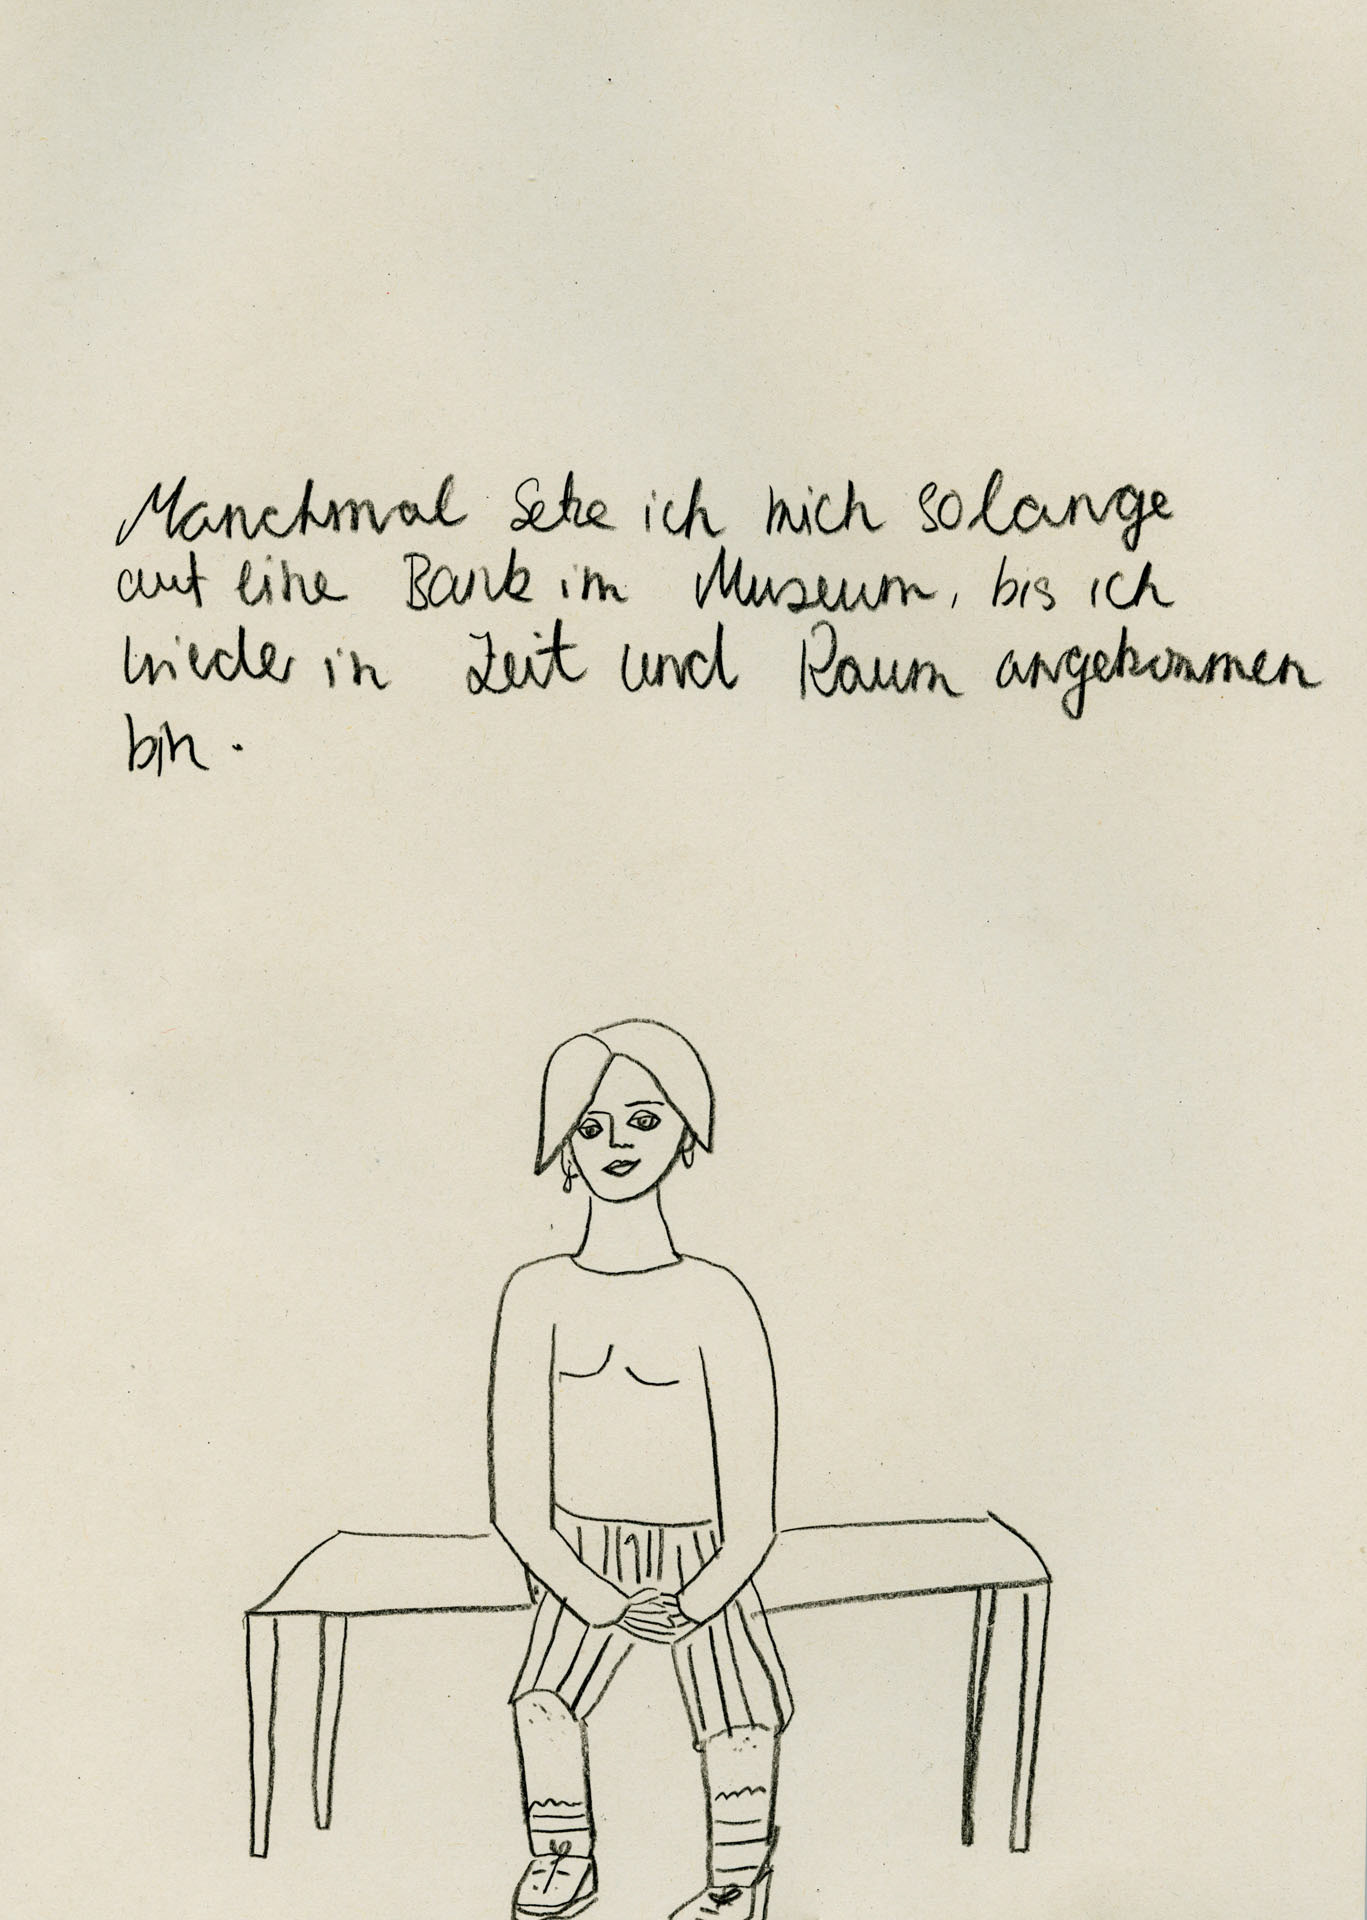 Manchmal setze ich mich solange
auf eine Bank im Museum, bis ich
wieder in Zeit und Raum angekommen
bin.